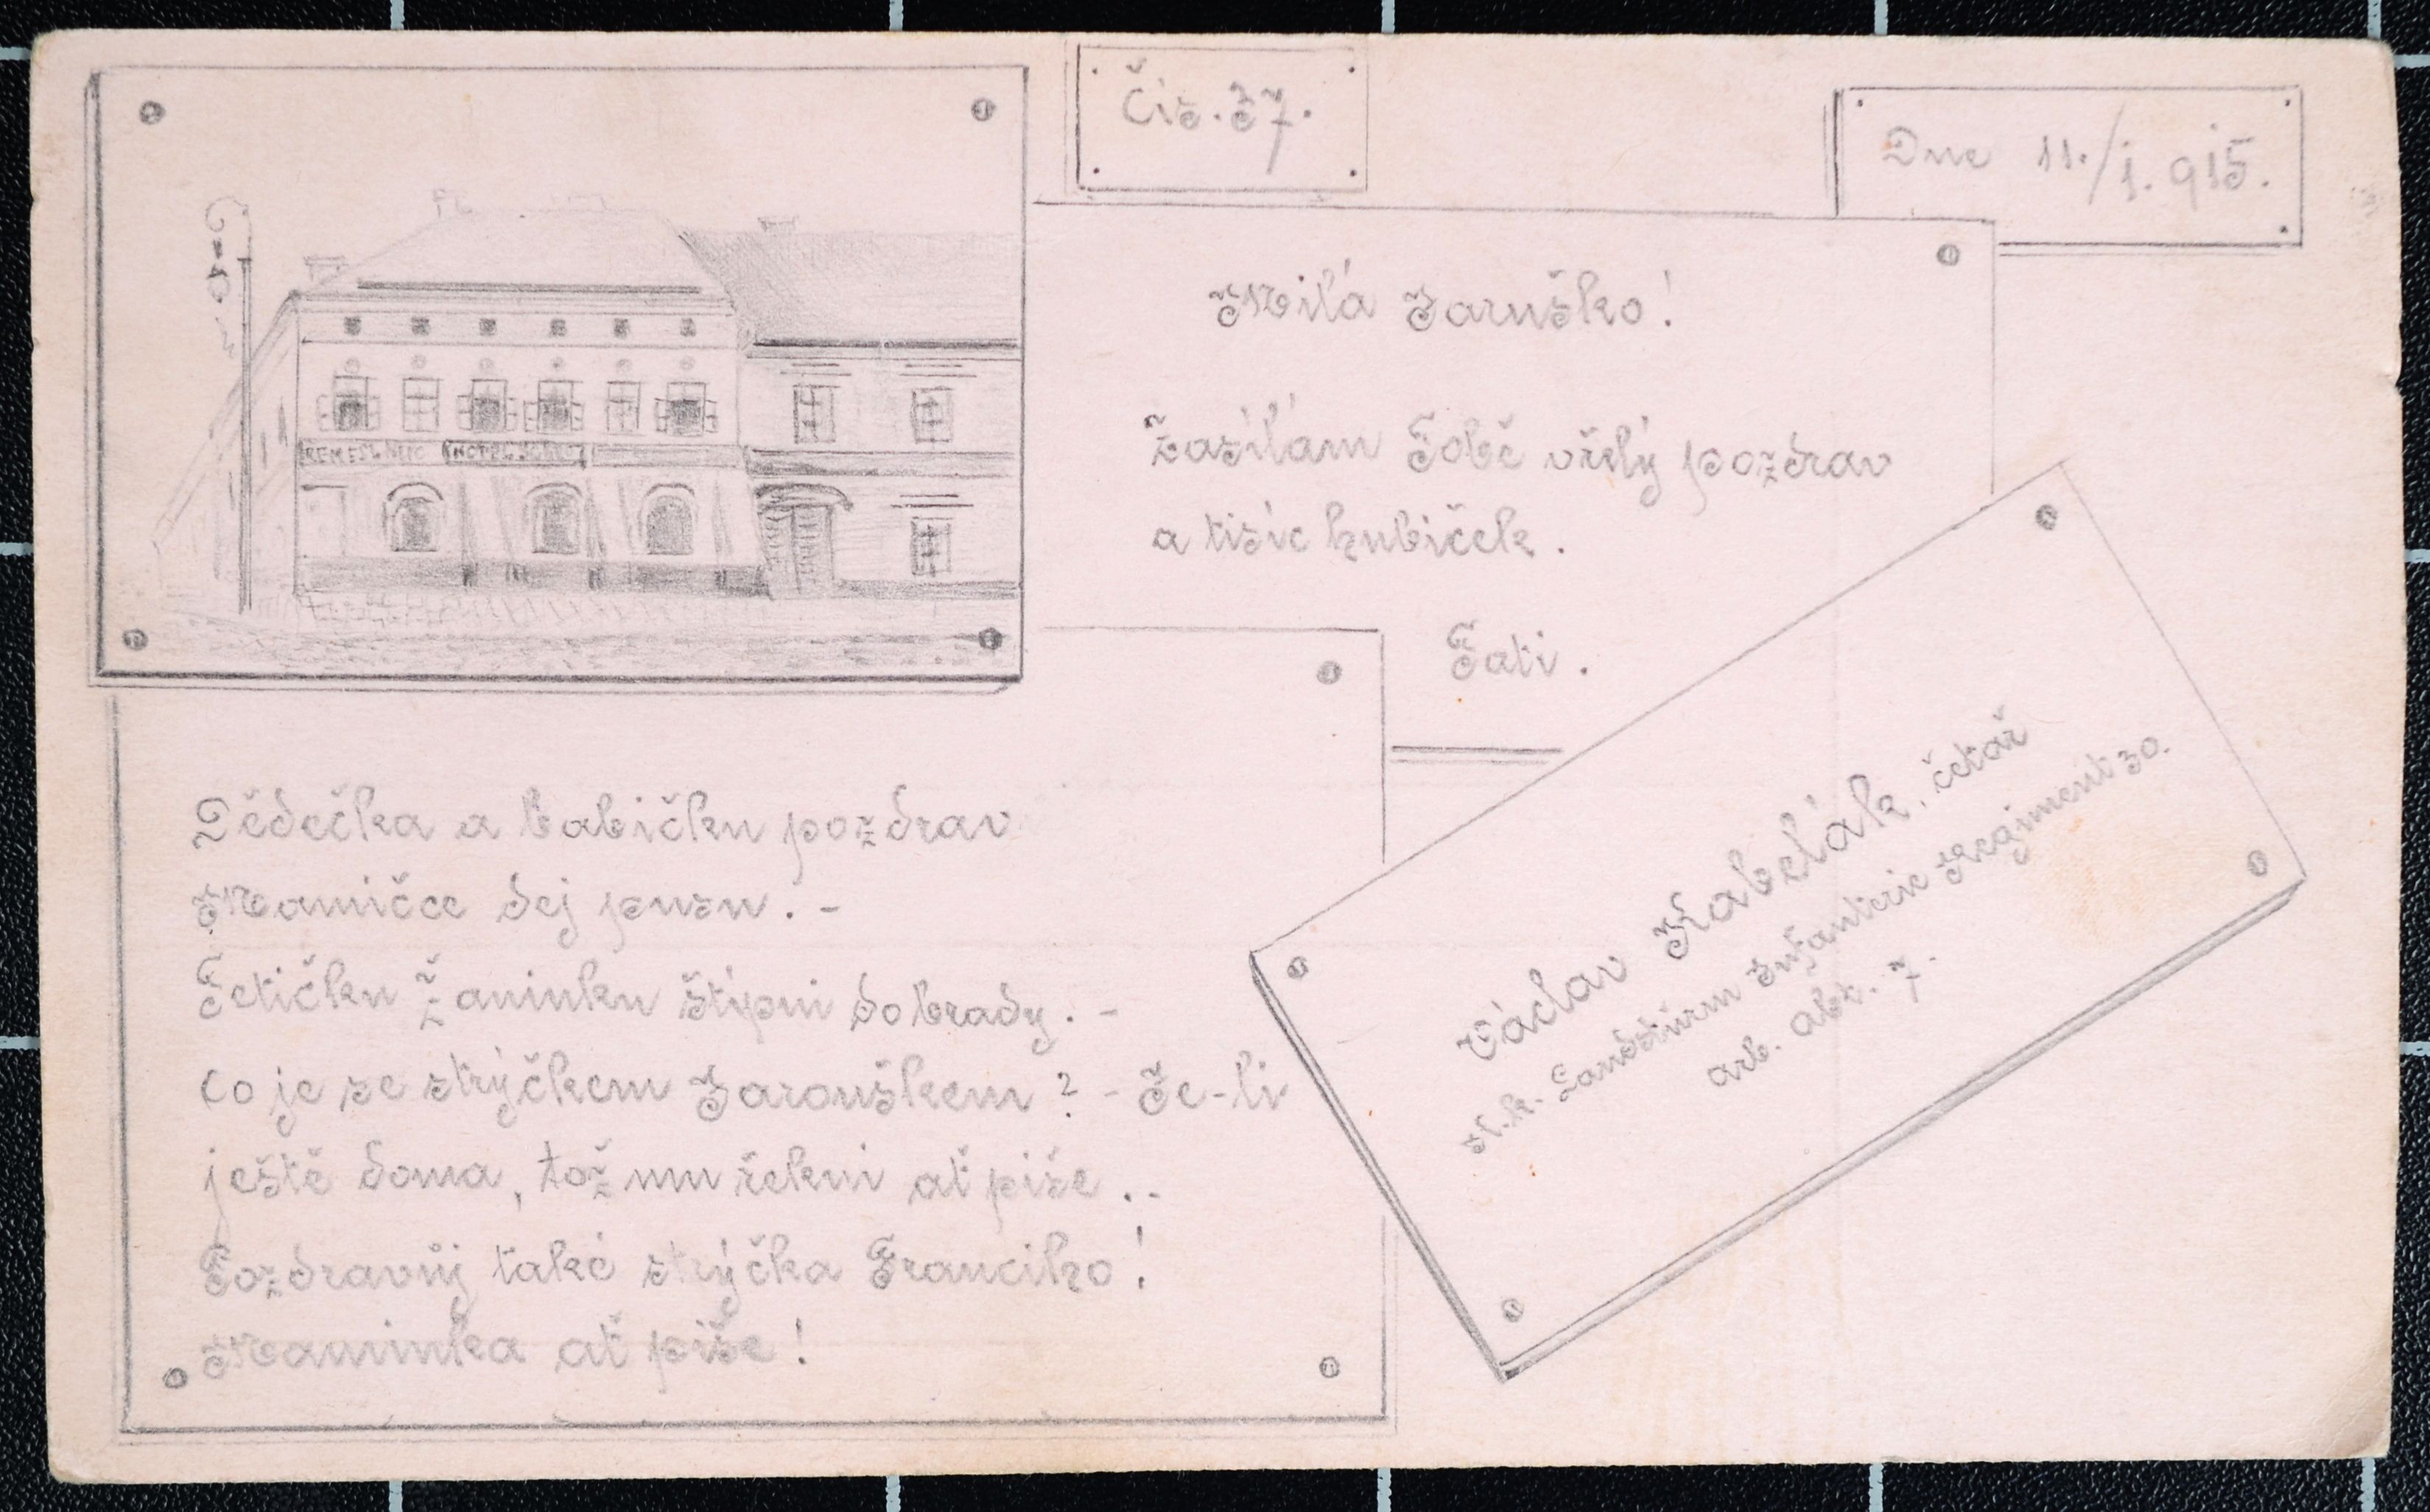 Čís. 37.
Dne 11./1. 915.
Milá Jaruško!
Zasílám Tobě vřelý pozdrav
a tisíc hubiček.
Tati.
Dědečka a babičku pozdrav
Mamičce dej pusu. -
Tetičku Žaninku štípni do brady. -
Co je se strýčkem Jarouškem? - Je-li
ještě doma, tož mu řekni ať píše..
Pozdravůj také strýčka Franciho!
Maminka ať píše!
Václav Kabelák, četař
K.k. Landsturm Infanterie Regiment 30.
arb. abt. 7.
HOTEL